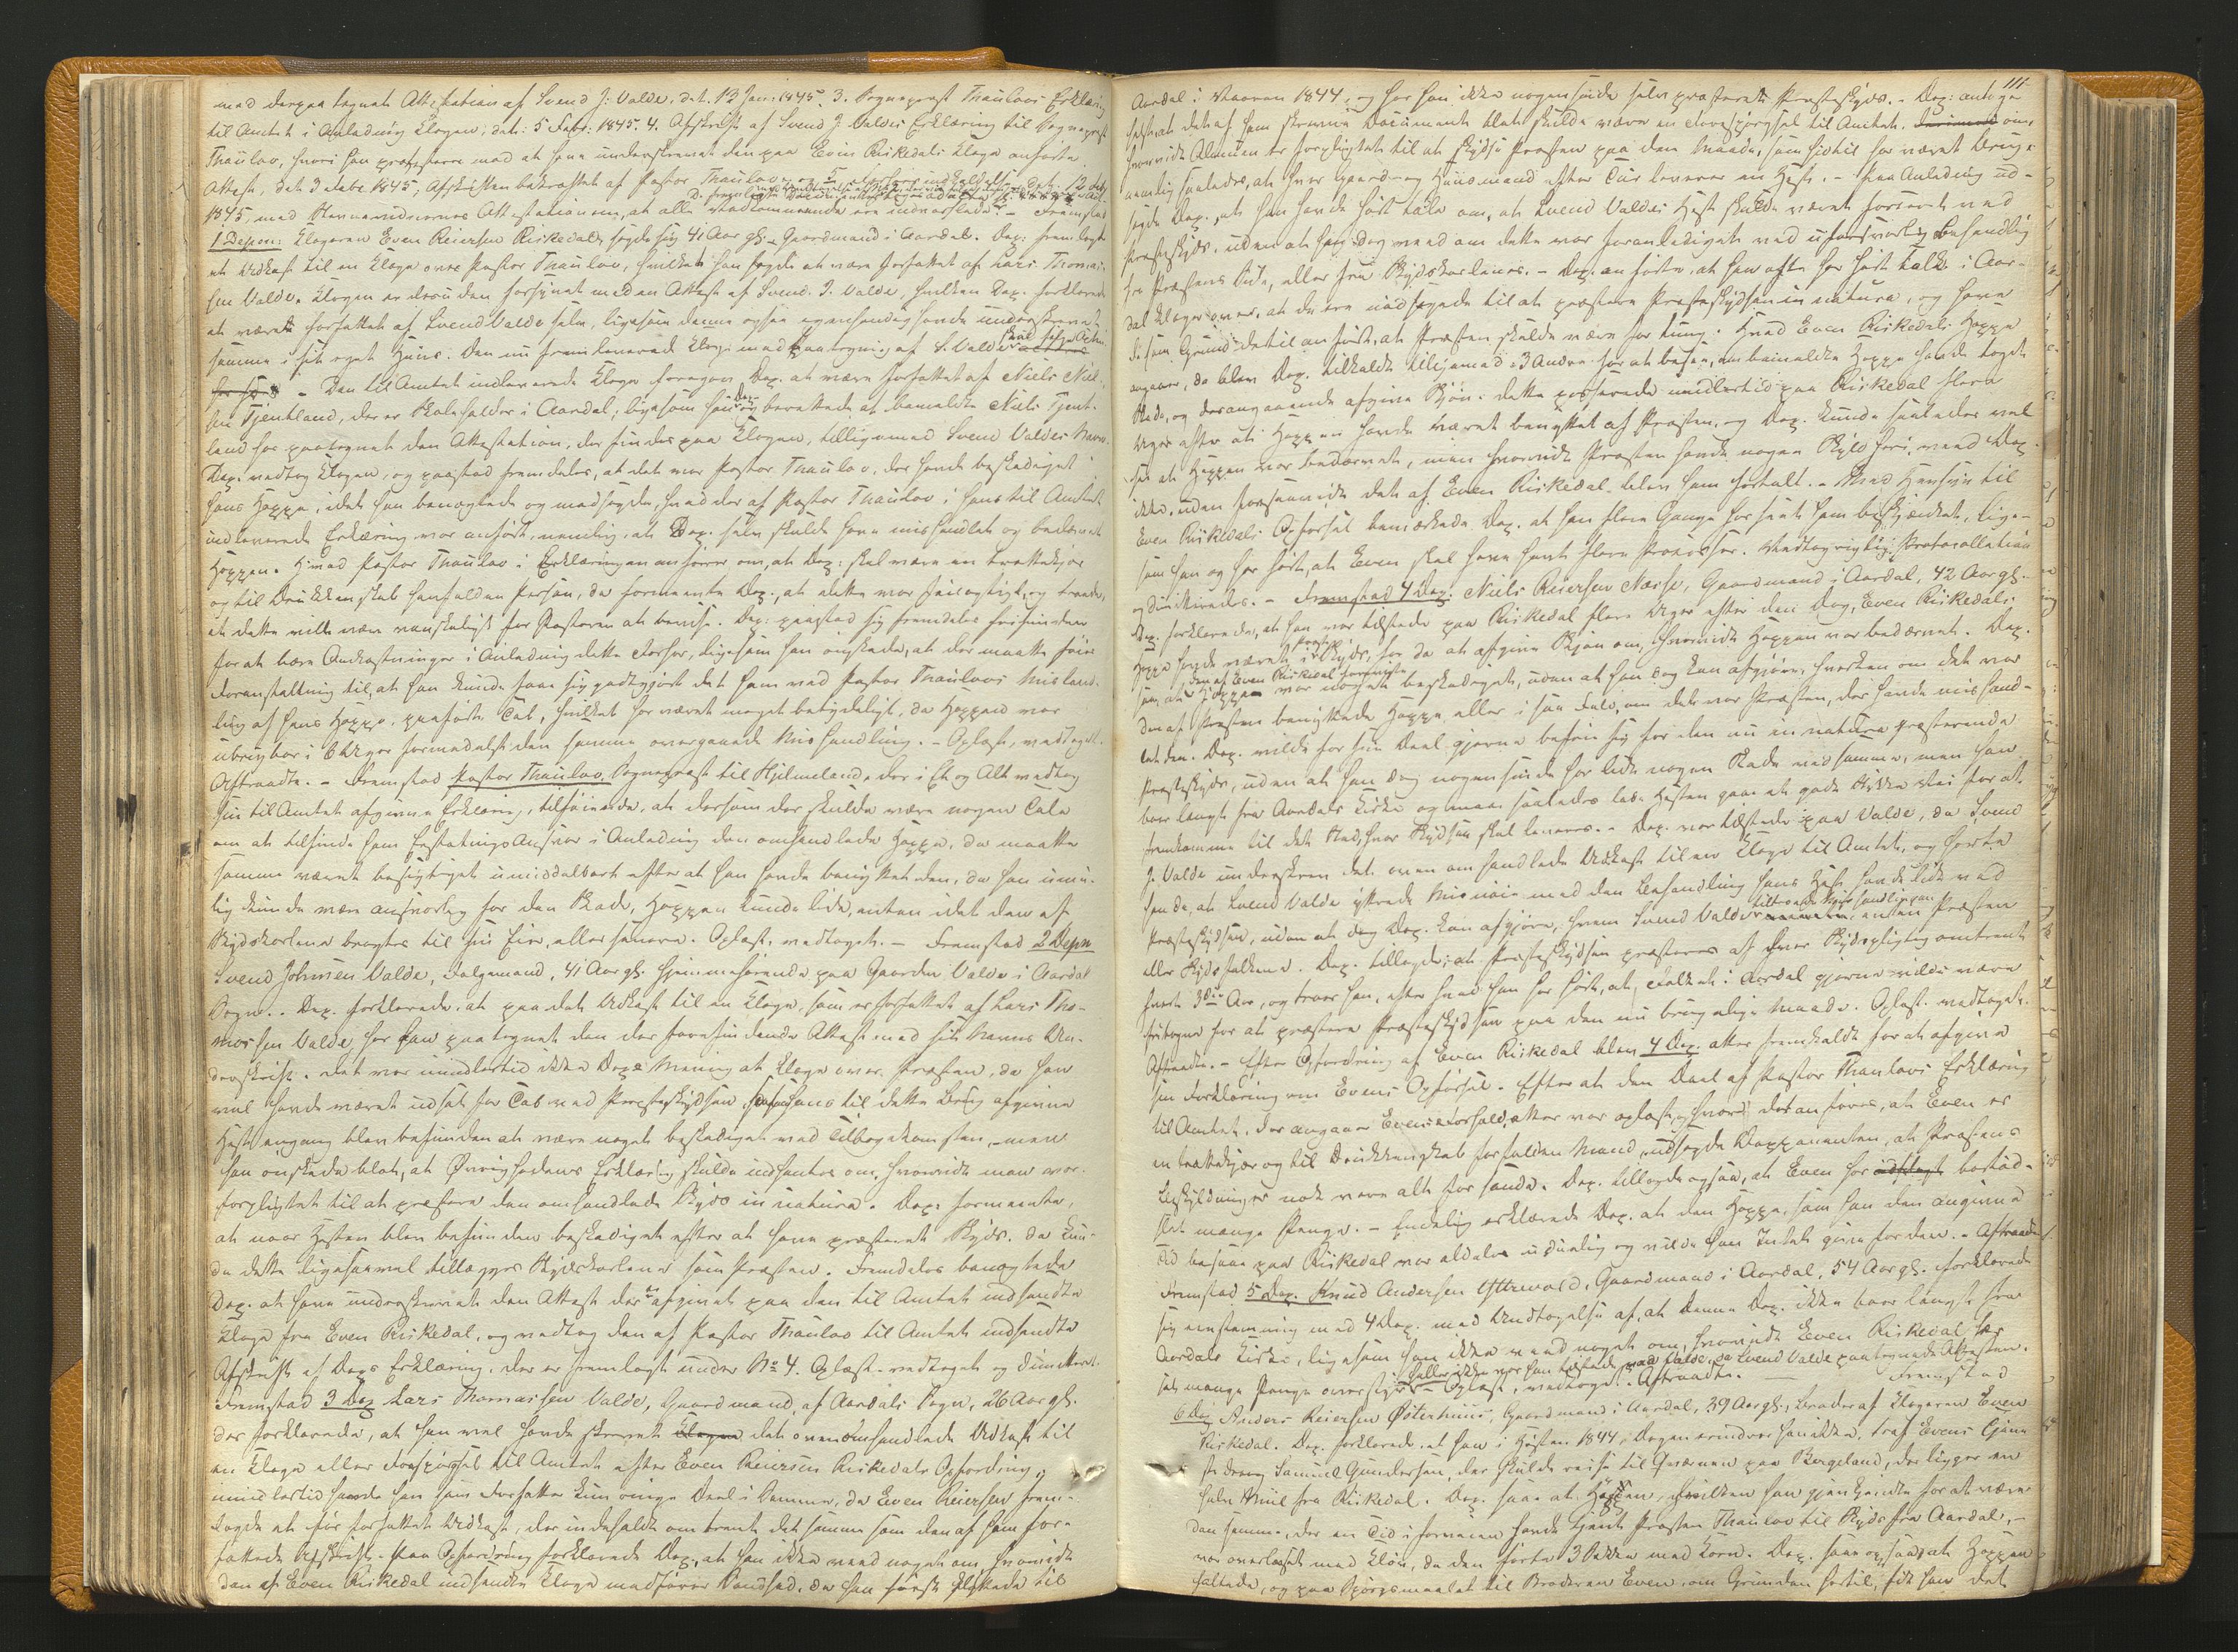 med derpaa tegnet Attestation af Svend J: Valde, dat. 13 Jan: 1845. 3. Sogneprest Thaulows Erklæring
til Amtet i Anledning Klagen, dat: 5 Febr: 1845. 4. Afskrift af Svend J. Valdes Erklæring til Sogneprest
Thaulow, hvori han protesterer mod at have underskrevet den paa Even Riskedals Klage anførte
Attest, dat 3 1845, Afskriften bekræftet af Pastor Thaulow og 5
1845, med Stevnevidnernes Attestation om, at alle Vedkommende ere indvarslede. - Fremstod
1 Depon: Klageren Even Reiersen Riskedal, sagde sig 41 Aar gl. Gaardmand i Aardal. Dep: fremlagde
et Udkast til en Klage over Pastor Thaulow, hvilket han sagde at være forfattet af Lars Thomas-
sen Valde. Klagen er desuden forsynet med en Attest af Svend J. Valde, hvilken Dep. forklarede
at været forfattet af Svend Valde selv, ligesom denne ogsaa egenhændig havde underskrevet
samme i sit eget Huus. Den nu fremleverede Klage med Paategning af S. Valde
- Den til Amtet indleverede Klage foregav Dep. at være forfattet af Niels Niel-
sen Tjentland, der er Skoleholder i Aardal, ligesom han og berettede at bemeldte Niels Tjent-
land har paategnet den Attestation, der findes paa Klagen, tilligemed Svend Valdes Navn.
Dep. vedtog Klagen, og paastod fremdeles, at det var Pastor Thaulow, der havde beskadiget
hans Hoppe, idet han benægtede og modsagde, hvad der af Pastor Thaulow i hans til Amtet
indleverede Erklæring var anført, nemlig, at Dep. selv skulde have mishandlet og bedærvet
Hoppen. Hvad Pastor Thaulow i Erklæringen anfører om, at Dep: skal være en trættekjær
og til Drukkenskab henfalden Person, da formeente Dep., at dette var feilagtigt, og troede,
at dette vilde være vanskeligt for Pastoren at bevise. Dep: paastod sig fremdeles frifunden
for at bære Omkostninger i Anledning dette Forhør, ligesom han ønskede, at der maatte føies
Foranstaltning til, at han kunde faae sig godtgjort det ham ved Pastor Thaulows Mishand-
ling af hans Hoppe, paaførte Tab, hvilket har været meget betydeligt, da Hoppen var
ubrugbar i 6 Uger formedelst den samme overgaaede Mishandling. - Oplæst, vedtaget.
Aftraadte. - Fremstod Pastor Thaulow, Sogneprest til Hjelmeland, der i Et og Alt vedtog
sin til Amtet afgivne Erklæring, tilføiende, at dersom der skulde være nogen Tale
om at tilfinde ham Erstatnings Ansvar i Anledning den omhandlede Hoppe, da maatte
samme været besigtiget umiddelbart efter at han havde benyttet den, da han umu-
lig kunde være ansvarlig for den Skade, Hoppen kunde lide, enten idet den af
Skydskarlene bragtes til sin Eier, eller senere. Oplæst, vedtaget. - Fremstod 2 Depon
Svend Johnsen Valde, Følgemand, 41 Aar gl. hjemmehørende paa Gaarden Valde i Aardal
Sogn. - Dep. forklarede, at paa det Udkast til en Klage, som er forfattet af Lars Tho-
massen Valde, har han paategnet den der forefindende Attest med sit Navns Un-
derskrift. Det var imidlertid ikke Deps Mening at klage over Præsten, da han
vel havde været udsat for Tab ved Præsteskydsen, hans til dette Brug afgivne
Hest engang blev befunden at være noget beskadiget ved Tilbagekomsten, - men
han ønskede blot, at Øvrighedens Erklæring skulde indhentes om, hvorvidt man var
forpligtet til at præstere den omhandlede Skyds in natura. Dep: formeente,
at naar Hesten blev befunden beskadiget efter at have præsteret Skyds, da kun-
de dette ligesaavel tillægges Skydskarlene som Præsten. Fremdeles benægtede
Dep. at have underskrevet den Attest der er afgivet paa den til Amtet indsendte
Klage fra Even Riskedal, og vedtog den af Pastor Thaulow til Amtet indsendte
Afskrift af Deps Erklæring, der er fremlagt under No 4. Oplæst, vedtaget og dimitteret.
Fremstod 3 Dep Lars Thomassen Valde, Gaardmand, af Aardals Sogn, 26 Aar gl.
der forklarede, at han vel havde skrevet Klagen det ovenomhandlede Udkast til
en Klage eller Forespørgsel til Amtet efter Even Reiersen Riskedals Opfordring,
imidlertid havde han som Forfatter kun ringe Deel i Samme, da Even Reiersen frem-
lagde et før forfattet Udkast, der indeholdt omtrent det samme som den af ham for-
fattede Afskrift. - Paa Opfordring forklarede Dep., at han ikke veed noget om, hvorvidt
den af Even Riskedal indsendte Klage medfører Sandhed, da han først flyttede til
111
Aardal i Vaaren 1844, og har han ikke nogensinde selv præsteret Præsteskyds. - Dep: antoge
at det af ham skrevne Document blot skulde være en Forespørgsel til Amtet om,
hvorvidt Almuen er forpligtet til at skydse Præsten paa den Maade, som hidtil har været brug-
nemlig saaledes, at hver Gaard- og Huusmand efter Tur leverer en Hest. - Paa Anledning ud-
sagde Dep., at han havde hørt tale om, at Svend Valdes Hest skulde været forvredet ved
Præsteskyds, uden at han dog veed om dette var foranlediget ved uforsvarlig Behandling
fra Præstens Side, eller fra Skydskarlenes. - Dep. anførte, at han ofte har hørt Folk i Aar-
dal klage over, at de ere nødsagede til at præstere Præsteskydsen in natura, og have
de som Grund dertil anført, at Præsten skulde være for tung. Hvad Even Riskedals Hoppe
angaaer, da blev Dep. tilkaldt tilligemed 3 Andre for at besee, om bemeldte Hoppe havde taget
Skade, og derangaaende afgive Skjøn. Dette passerede imidlertid paa Riskedal flere
Uger efter at Hoppen havde været benyttet af Præsten, og Dep. kunde saaledes vel
see at Hoppen var bedærvet, men hvorvidt Præsten havde nogen Skyld heri, veed Dep.
ikke, uden forsaavidt det af Even Riskedal blev ham fortalt. - Med Hensyn til
Even Riskedals Opførsel bemærkede Dep. at han flere Gange har seet ham beskjænket, lige-
som han og har hørt, at Even skal have havt flere Processer. Vedtog rigtig Protocollation
og dimitteredes. - Fremstod 4 Dep: Niels Reiersen Næsse, Gaardmand i Aardal, 42 Aar gl. -
Dep. forklarede, at han var tilstede paa Riskedal flere Uger efter den Dag, Even Riskedals
Hoppe havde været i Præsteskyds, for da at afgive Skjøn om, hvorvidt Hoppen var bedærvet. Dep.
saae, at Hoppen var noget beskadiget, uden at han dog kan afgjøre, hverken om det var
den af Præsten benyttede Hoppe, eller i saa Fald, om det var Præsten, der havde mishand-
let den. Dep. vilde for sin Deel gjerne befries fra den nu in natura præsterende
Præsteskyds, uden at han dog nogensinde har lidt nogen Skade ved samme, men han
boer langt fra Aardals Kirke og maa saaledes lade Hesten gaae et godt Stykke Vei for at
fremkomme til det Sted, hvor Skydsen skal leveres. - Dep. var tilstede paa Valde, da Svend
J. Valde underskrev det ovenomhandlede Udkast til en Klage til Amtet, og hørte
han da, at Svend Valde yttrede Misnøie med den Behandling hans Hest havde lidt ved
Præsteskydsen, uden at dog Dep. kan afgjøre, hvem Svend Valde tiltroede Mishandlingen, enten Præsten
eller Skydsfolkene. Dep. tillagde, at Præsteskydsen præsteres af hver Skydspligtig omtrent
hvert 3die Aar, og troer han, efter hvad han har hørt, at Folket i Aardal gjerne vilde være
fritagne for at præstere Præsteskydsen paa den nu brugelige Maade. Oplæst. vedtaget.
Aftraadte. - Efter Opfordring af Even Riskedal blev 4 Dep. atter fremkaldt for at afgive
sin Forklaring om Evens Opførsel. Efter at den Deel af Pastor Thaulows Erklæring
til Amtet, der angaaer Evens Forhold, atter var oplæst, hvori det anføres, at Even er
en trættekjær og til Drukkenskab forfalden Mand, udsagde Deponenten, at Præstens
Beskyldninger nok vare alt for sande. Dep. tillagde ogsaa, at Even har bortød-
slet mange Penge. - Endelig erklærede Dep. at den Hoppe, som han den angivne
Tid besaae paa Riskedal var aldeles uduelig og vilde han Intet give for den. - Aftraadte
Fremstod 5 Dep. Knud Andersen Yttrevold, Gaardmand i Aardal, 54 Aar gl. forklarede
sig eenstemmig med 4 Dep. med Undtagelse af, at denne Dep. ikke boer langt fra
Aardals Kirke, ligesom han ikke veed noget om, hvorvidt Even Riskedal har
sat mange Penge overstyr. - heller ikke var han tilstede paa Valde, da Svend Valde paategnede Attesten.
Oplæst, vedtaget. Aftraadte. - Fremstod
6 Dep Anders Reiersen Østerhuus, Gaardmand i Aardal, 39 Aar gl., Broder af Klageren Even
Riskedal. Dep. forklarede at han i Høsten 1844, Dagen erindrer han ikke, traf Evens Tjene-
stedreng Samuel Gundersen, der skulde reise til Qværnen paa Bergeland, der ligger en
halv Miil fra Riskedal. Dep. saae at Hoppen, hvilken han gjenkjendte for at være
den samme, der en Tid i forveien havde tjent Præsten Thaulow til Skyds fra Aardal, -
var overlæsset med Kløv, da den førte 3 Sække med Korn. Dep. saae ogsaa, at Hoppen
haltede, og paa Spørgsmaalet til Broderen Even, om Grunden hertil, fik han det